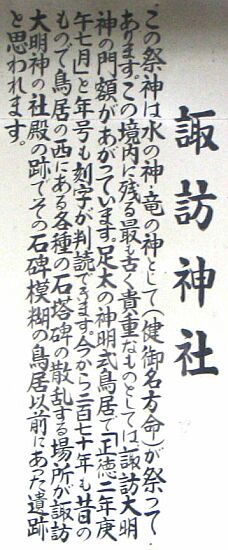 諏訪神社
この祭神は水の神・竜の神として(健御名方命)が祭って
あります。この境内に残る最も古く貴重なものとしては、諏訪大明
神の門額があがっています。足太の神明式鳥居で「正徳二年庚
午七月」と年号も刻字が判読できます。今から二百七十年も昔の
もので鳥居の西にある各種の石塔碑の散乱する場所が諏訪
大明神の社殿の跡でその石碑模糊の鳥居以前にあった遺跡
と思われます。